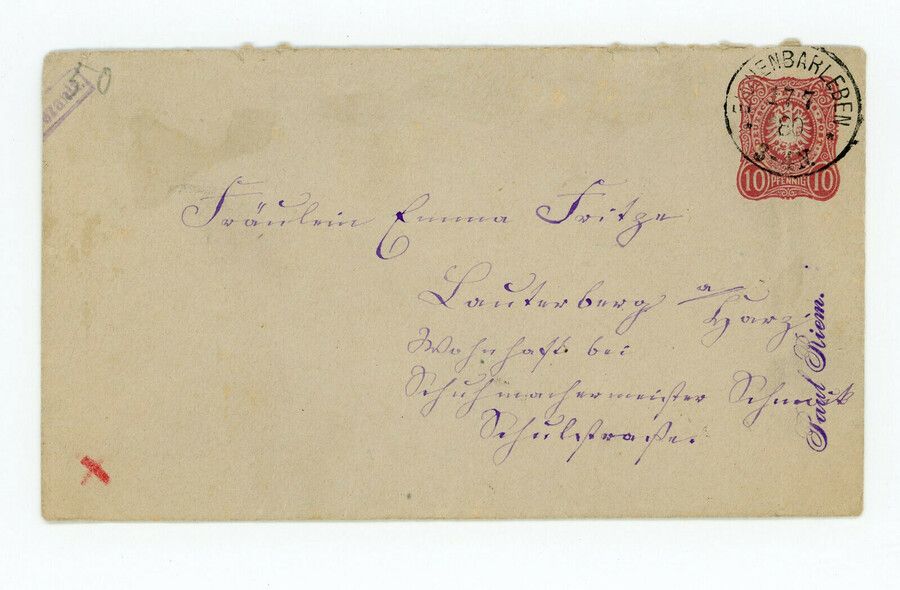 50
17 7
80
3-4 N.
10 PFENNIG 10
Fräulein Emma Fritze
Lauterberg a/Harz
Wohnhaft bei
Schuhmachermeister
Schulstraße.
Paul Riem.